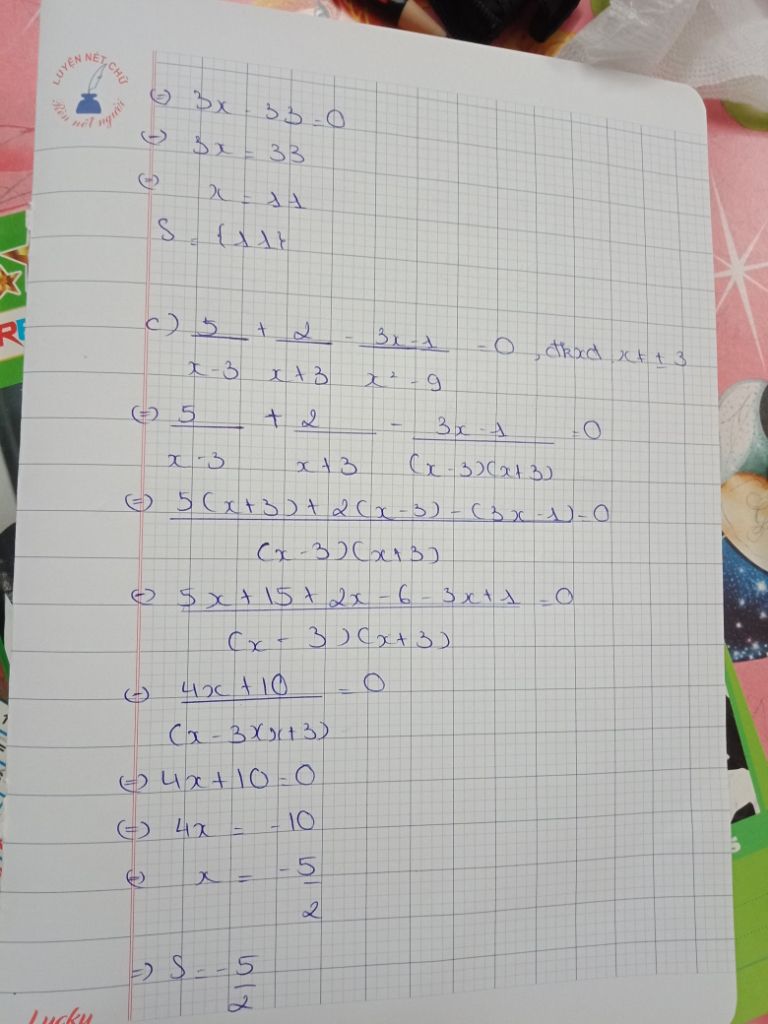 LUYỆN NÉT CHỮ
Rèn nết người
⇔ 3x - 33 = 0
⇔ 3x = 33
⇔ x = 11
S = {11}
c) 5/(x-3) + 2/(x+3) - (3x-1)/(x²-9) = 0, đkxđ x ≠ ±3
⇔ 5/(x-3) + 2/(x+3) - (3x-1)/((x-3)(x+3)) = 0
⇔ (5(x+3) + 2(x-3) - (3x-1))/((x-3)(x+3)) = 0
⇔ (5x + 15 + 2x - 6 - 3x + 1)/((x-3)(x+3)) = 0
⇔ (4x + 10)/((x-3)(x+3)) = 0
⇔ 4x + 10 = 0
⇔ 4x = -10
⇔ x = -5/2
=> S = -5/2
Lucky